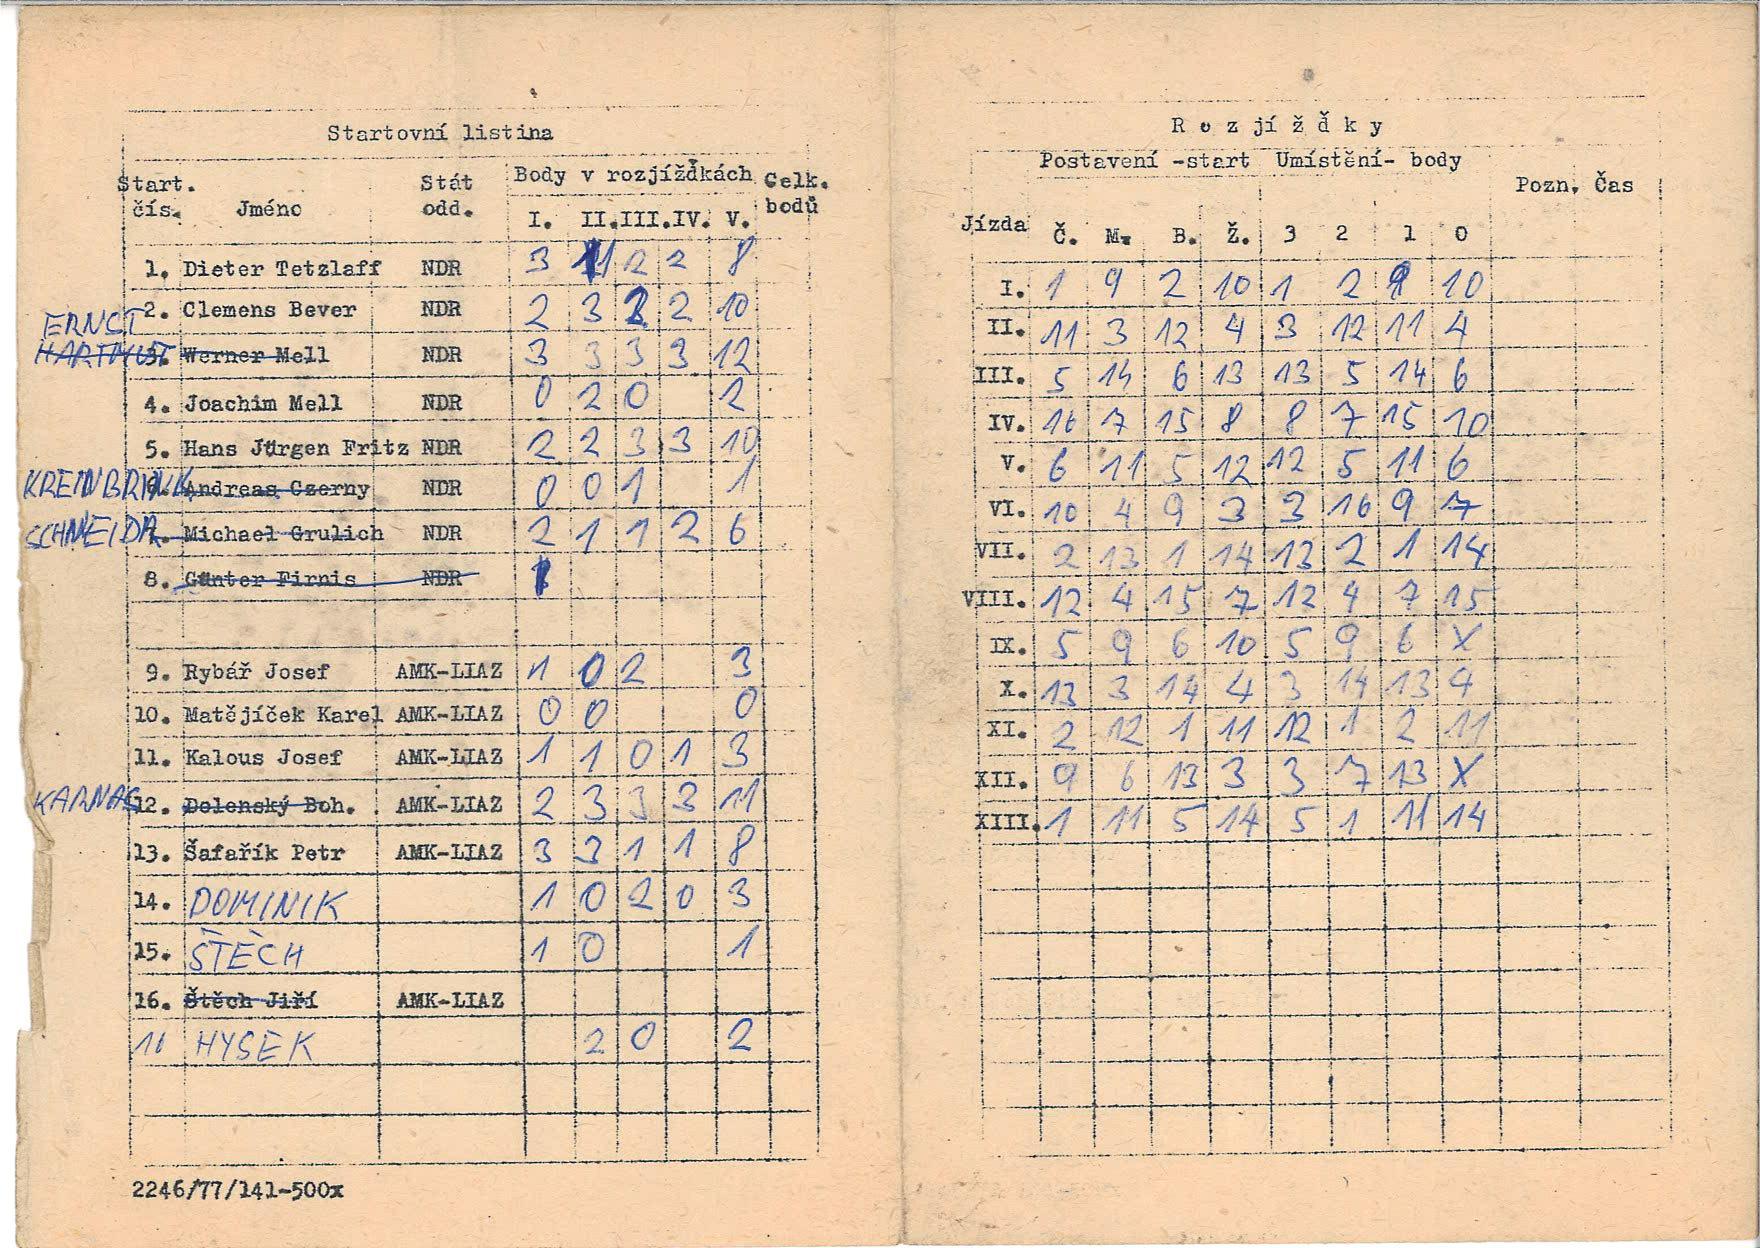 Startovní listina
Start. čís. Jméno Stát odd. Body v rozjížďkách Celk. bodů
I. II. III. IV. V.
1. Dieter Tetzlaff NDR 3 1 2 2 8
2. Clemens Bever NDR 2 3 3 2 10
ERNST
HARTMUT 3. Werner Mell NDR 3 3 3 3 12
4. Joachim Mell NDR 0 2 0 2
5. Hans Jürgen Fritz NDR 2 2 3 3 10
KREINBRINK 6. Andreas Czerny NDR 0 0 1 1
SCHNEIDR 7. Michael Grulich NDR 2 1 1 2 6
8. Günter Firnis NDR
9. Rybář Josef AMK-LIAZ 1 0 2 3
10. Matějíček Karel AMK-LIAZ 0 0 0
11. Kalous Josef AMK-LIAZ 1 1 0 1 3
KARNAS 12. Dolenský Boh. AMK-LIAZ 2 3 3 3 11
13. Šafařík Petr AMK-LIAZ 3 3 1 1 8
14. DOMINIK 1 0 2 0 3
15. ŠTĚCH 1 0 1
16. Štěch Jiří AMK-LIAZ
16 HYSEK 2 0 2
2246/77/141-500x
Rozjížďky
Postavení -start Umístění- body
Pozn. Čas
Jízda Č. M. B. Ž. 3 2 1 0
I. 1 9 2 10 1 2 9 10
II. 11 3 12 4 3 12 11 4
III. 5 14 6 13 13 5 14 6
IV. 16 7 15 8 8 7 15 10
V. 6 11 5 12 12 5 11 6
VI. 10 4 9 3 3 16 9 7
VII. 2 13 1 14 13 2 1 14
VIII. 12 4 15 7 12 4 7 15
IX. 5 9 6 10 5 9 6 X
X. 13 3 14 4 3 14 13 4
XI. 2 12 1 11 12 1 2 11
XII. 9 6 13 3 3 7 13 X
XIII. 1 11 5 14 5 1 11 14